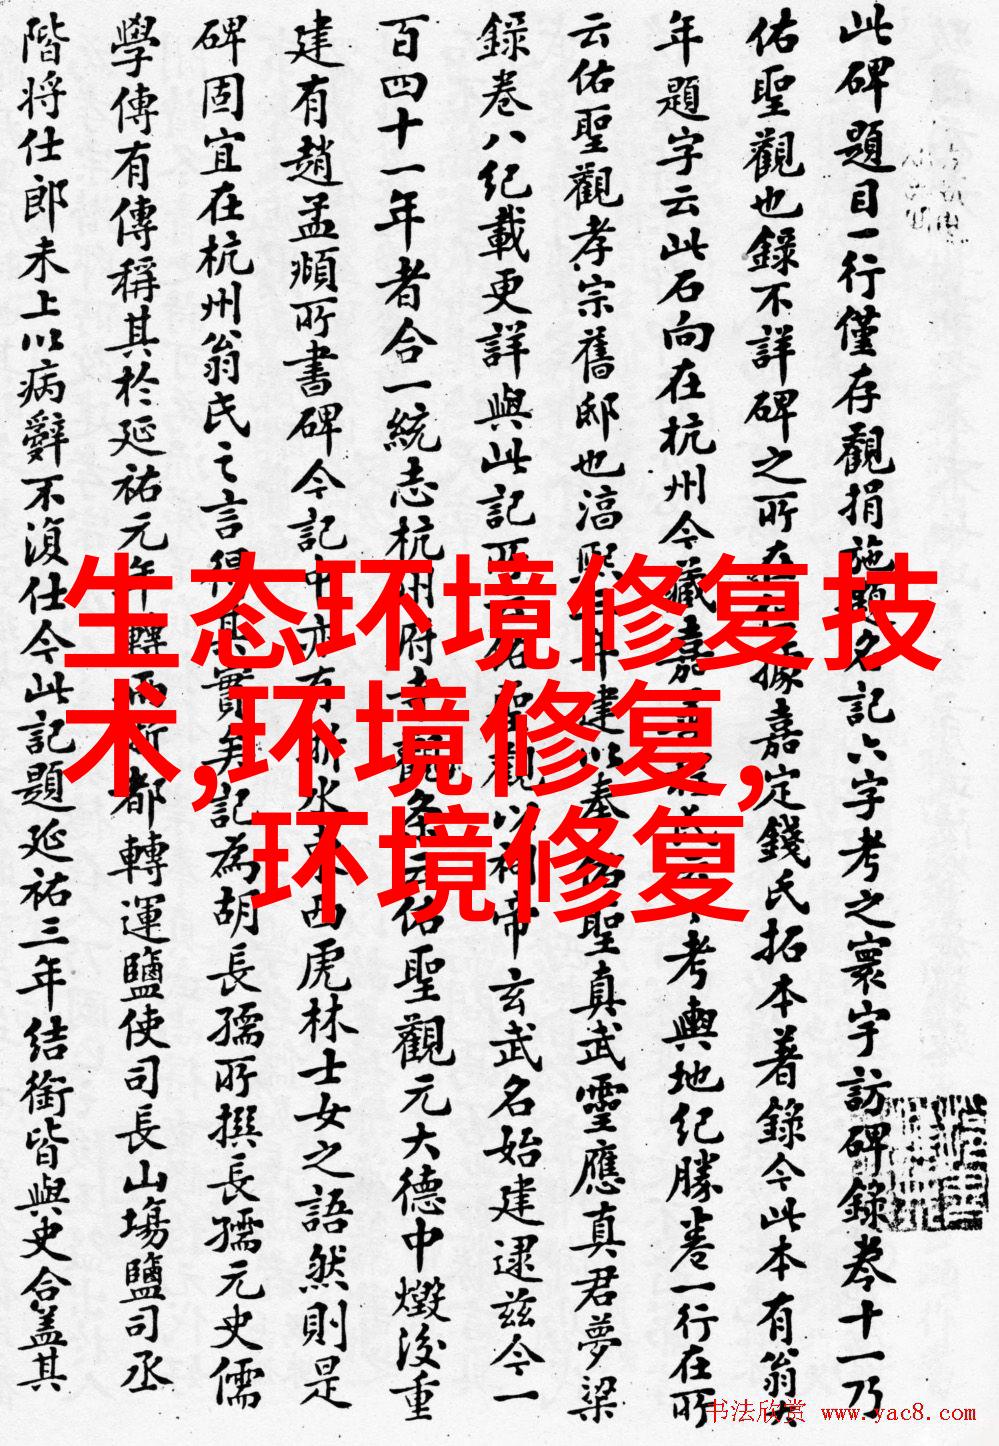 此碑題目一行僅存觀捐施題名記六字考之寰宇訪碑錄卷十一乃
佑聖觀也錄不詳碑之所在據嘉定錢氏拓本著錄今此本有翁大
年題字云此石向在杭州今藏嘉考輿地紀勝卷一行在所
云佑聖觀孝宗舊邸也淳熙三年建以奉佑聖真武靈應真君夢粱
錄卷八紀載更詳與此記所云佑聖觀以祠帝玄武名始建逮茲今一
百四十一年者合一統志杭州府寺觀條云佑聖觀元大德中燬後重
建有趙孟頫所書碑今記中亦有浙水東西虎林士女之語然則是
碑固宜在杭州翁氏之言得其實矣記為胡長孺所撰長孺元史儒
學傳有傳稱其於延祐元年轉兩浙都轉運鹽使司長山場鹽司丞
階將仕郎未上以病辭不復仕今此記題延祐三年結銜皆與史合蓋其
生态环境修复技
术,环境修复,
环境修复
书法欣赏 www.yac8.com